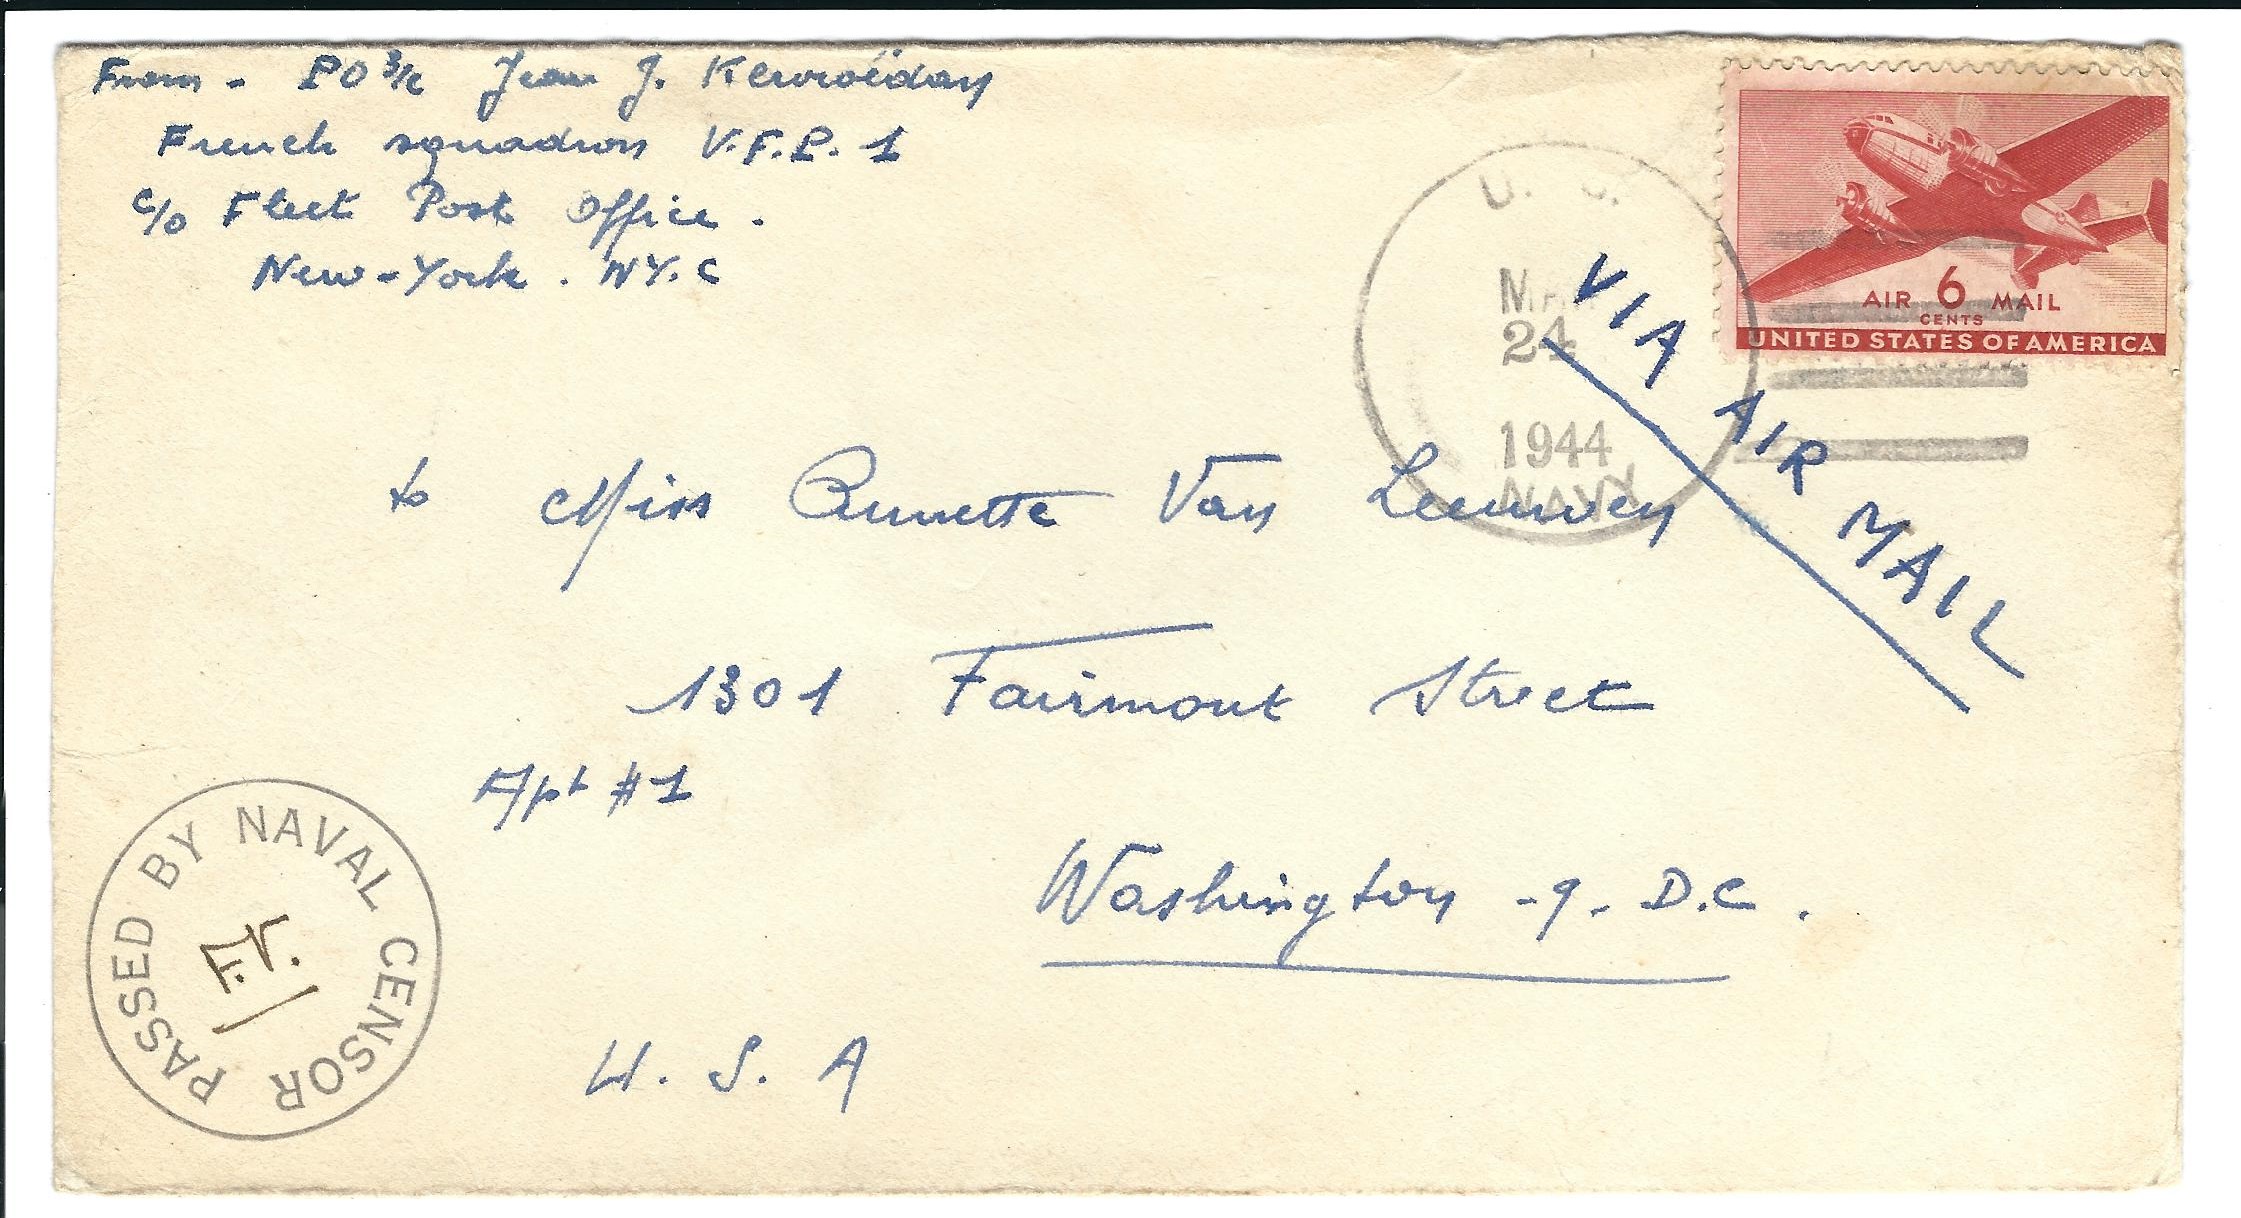 From - PO 3/c Jean J. Kervoëdan
French squadron V.F.P. 1
c/o Fleet Post Office.
New-York. NY.C
U. S.
MAR
24
1944
NAVY
AIR 6 MAIL
CENTS
UNITED STATES OF AMERICA
VIA AIR MAIL
to Miss Annette Van Leeuwen
1301 Fairmont Street
Apt #1
Washington - 9. D.C.
U. S. A
PASSED BY NAVAL CENSOR